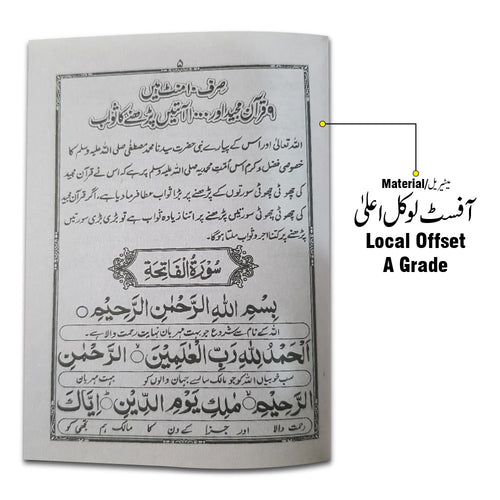 ۵
صرف ۱۰ منٹ میں
۹ قرآن مجید اور ۱۰۰۰ آیتیں پڑھنے کا ثواب
اللہ تعالیٰ اور اس کے پیارے نبی حضرت سیدنا محمد مصطفیٰ صلی اللہ علیہ وسلم کا
خصوصی فضل و کرم اس اُمّتِ محمدیہ صلی اللہ علیہ وسلم پر ہے کہ اس نے قرآن مجید
کی چھوٹی چھوٹی سورتوں کے پڑھنے پر بڑا ثواب عطا فرما دیا ہے، اگر قرآن مجید
کی چھوٹی چھوٹی سورتیں پڑھنے پر اتنا زیادہ ثواب ہے تو بڑی بڑی سورتیں
پڑھنے پر کتنا اجر و ثواب ملتا ہوگا۔
سُوْرَۃُ الْفَاتِحَة
بِسْمِ اللهِ الرَّحْمٰنِ الرَّحِيْمِ
اللہ کے نام سے شروع جو بہت مہربان نہایت رحمت والا ہے۔
اَلْحَمْدُ لِلّٰهِ رَبِّ الْعٰلَمِيْنَ الرَّحْمٰنِ
سب خوبیاں اللہ کو جو مالک سارے جہان والوں کو بہت مہربان
الرَّحِيْمِ مٰلِكِ يَوْمِ الدِّيْنِ اِيَّاكَ
رحمت والا اور جزا کے دن کا مالک ہم تجھی کو
Material/میٹیریل
آفسٹ لوکل اعلیٰ
Local Offset
A Grade